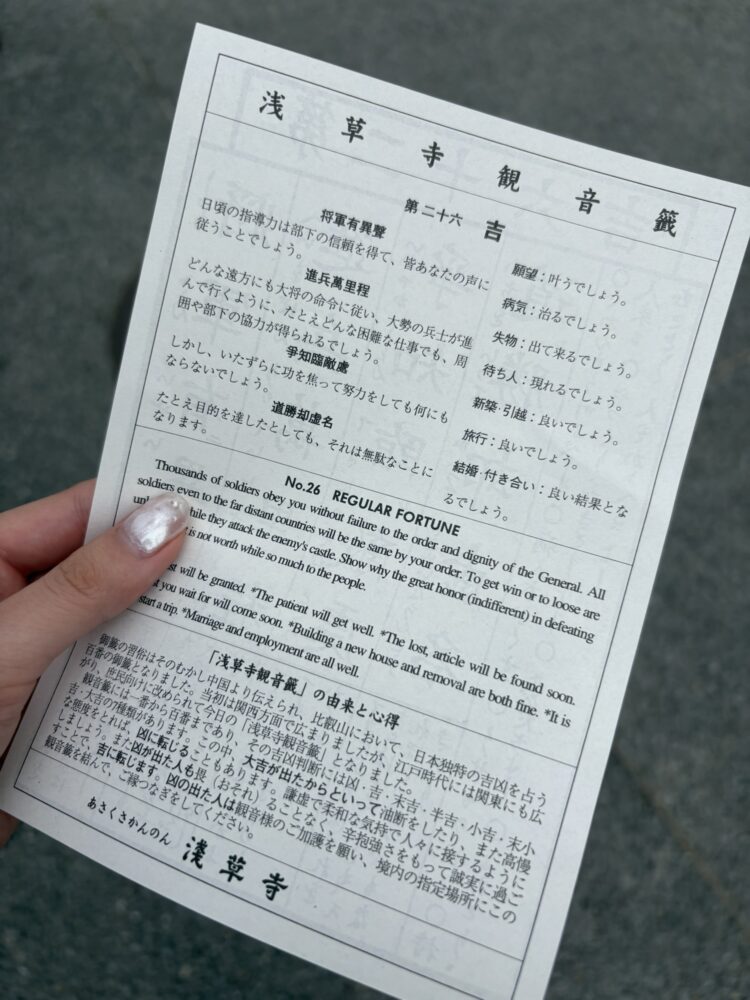 浅草寺観音籤
第二十六 吉
将軍有異聲
日頃の指導力は部下の信頼を得て、皆あなたの声に
従うことでしょう。
進兵萬里程
どんな遠方にも大将の命令に従い、大勢の兵士が進
んで行くように、たとえどんな困難な仕事でも、周
囲や部下の協力が得られるでしょう。
爭知臨敵處
しかし、いたずらに功を焦って努力をしても何にも
ならないでしょう。
道勝却虚名
たとえ目的を達したとしても、それは無駄なことに
なります。
願望：叶うでしょう。
病気：治るでしょう。
失物：出て来るでしょう。
待ち人：現れるでしょう。
新築・引越：良いでしょう。
旅行：良いでしょう。
結婚・付き合い：良い結果とな
るでしょう。
No.26 REGULAR FORTUNE
Thousands of soldiers obey you without failure to the order and dignity of the General. All
soldiers even to the far distant countries will be the same by your order. To get win or to loose are
while they attack the enemy's castle. Show why the great honor (indifferent) in defeating
is not worth while so much to the people.
will be granted. *The patient will get well. *The lost, article will be found soon.
you wait for will come soon. *Building a new house and removal are both fine. *It is
start a trip. *Marriage and employment are all well.
「浅草寺観音籤」の由来と心得
御籤の習俗はそのむかし中国より伝えられ、比叡山において、日本独特の吉凶を占う
百番の御籤となりました。当初は関西方面で広まりましたが、江戸時代には関東にも広
がり、庶民向けに改められて今日の「浅草寺観音籤」となりました。
観音籤には一番から百番まであり、その吉凶判断には凶・吉・末吉・半吉・小吉・末小
吉・大吉の7種類があります。この中、大吉が出たからといって油断をしたり、また高慢
な態度をとれば、凶に転じることもあります。謙虚で柔和な気持で人々に接するように
しましょう。また凶が出た人も畏（おそれ）ることなく、辛抱強さをもって誠実に過ご
すことで、吉に転じます。凶の出た人は観音様のご加護を願い、境内の指定場所にこの
観音籤を結んで、ご縁つなぎをしてください。
あさくさかんのん 淺草寺